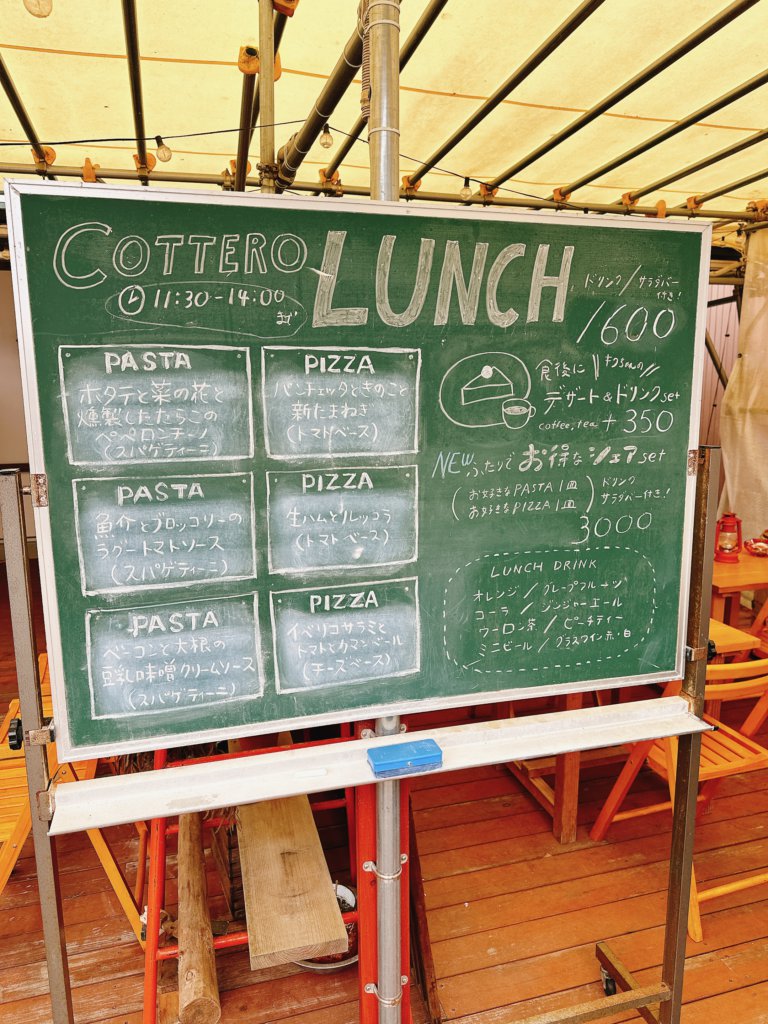 COTTERO LUNCH
11:30-14:00
まで
ドリンク/サラダバー
付き!
1600
PASTA
ホタテと菜の花と
燻製したたらこの
ペペロンチーノ
(スパゲティーニ)
PIZZA
パンチェッタときのこと
新たまねぎ
(トマトベース)
PASTA
魚介とブロッコリーの
ラグートマトソース
(スパゲティーニ)
PIZZA
生ハムとルッコラ
(トマトベース)
PASTA
ベーコンと大根の
豆乳味噌クリームソース
(スパゲティーニ)
PIZZA
イベリコサラミと
トマトとカマンベール
(チーズベース)
食後に
デザート&ドリンクset
coffee, tea +350
NEW ふたりで お得な シェアset
(お好きなPASTA 1皿
お好きなPIZZA 1皿)
ドリンク
サラダバー付き!
3000
LUNCH DRINK
オレンジ/グレープフルーツ
コーラ/ジンジャーエール
ウーロン茶/ピーチティー
ミニビール/グラスワイン赤・白